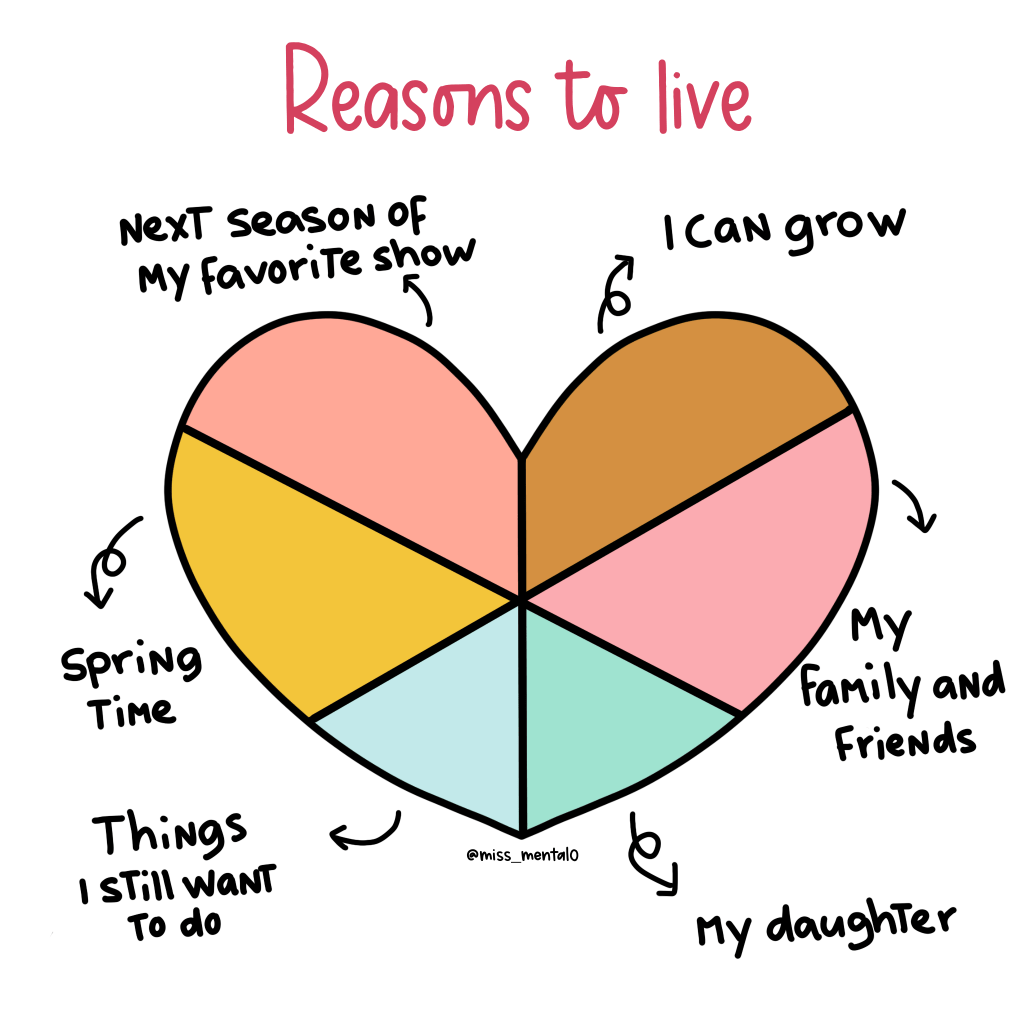 Reasons to live
Next season of
my favorite show
I can grow
Spring
Time
My
family and
friends
Things
I still want
to do
@miss_mental0
My daughter